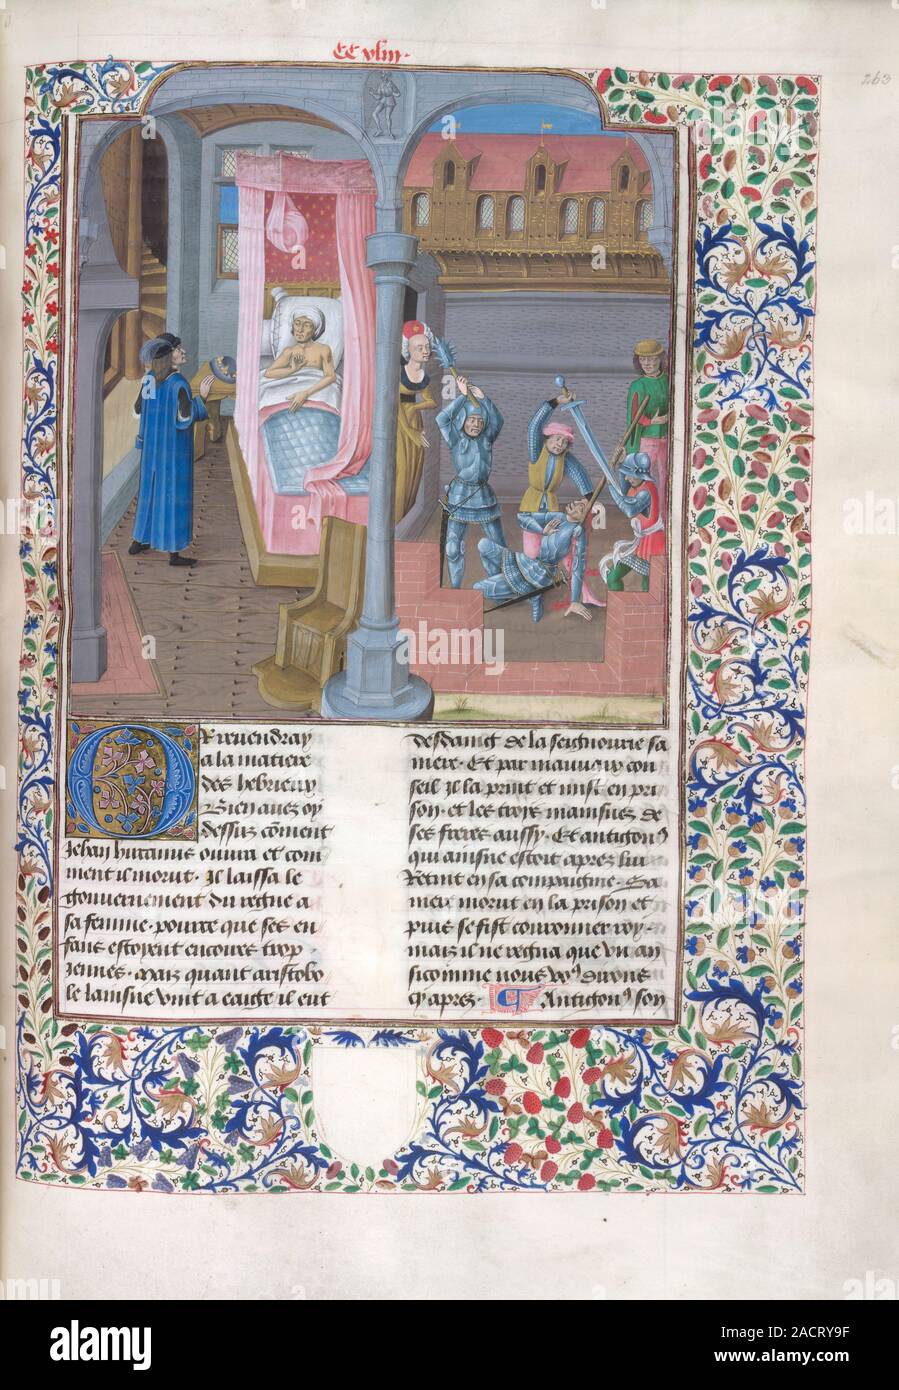 CC xliii.
263
Or reuendray
a la matiere
des hebrieux
Bien auez oy
dessus cõment
Jehan hircanus ouura et com
ment il morut. Il laissa le
gouuernement du regne a
sa femme. pource que ses en
fans estoyent encores trop
Jennes. Mais quant aristobo
le laisne vint a eaige il eut
desdaing de la seignourie sa
mere. Et par mauuais con
seil il la print et mist en pri
son. et les troys mainsnes de
ses freres aussy. Et antigonꝰ
qui aisne estoit apres lui
Retint en sa compaignie. Sa
mere morut en la prison et
puis se fist couronner roy.
mais il ne regna que vn an
sicomme nous voꝰ dirons
cy apres. Antigonꝰ son
alamy
Image ID: 2ACRY9F
www.alamy.com